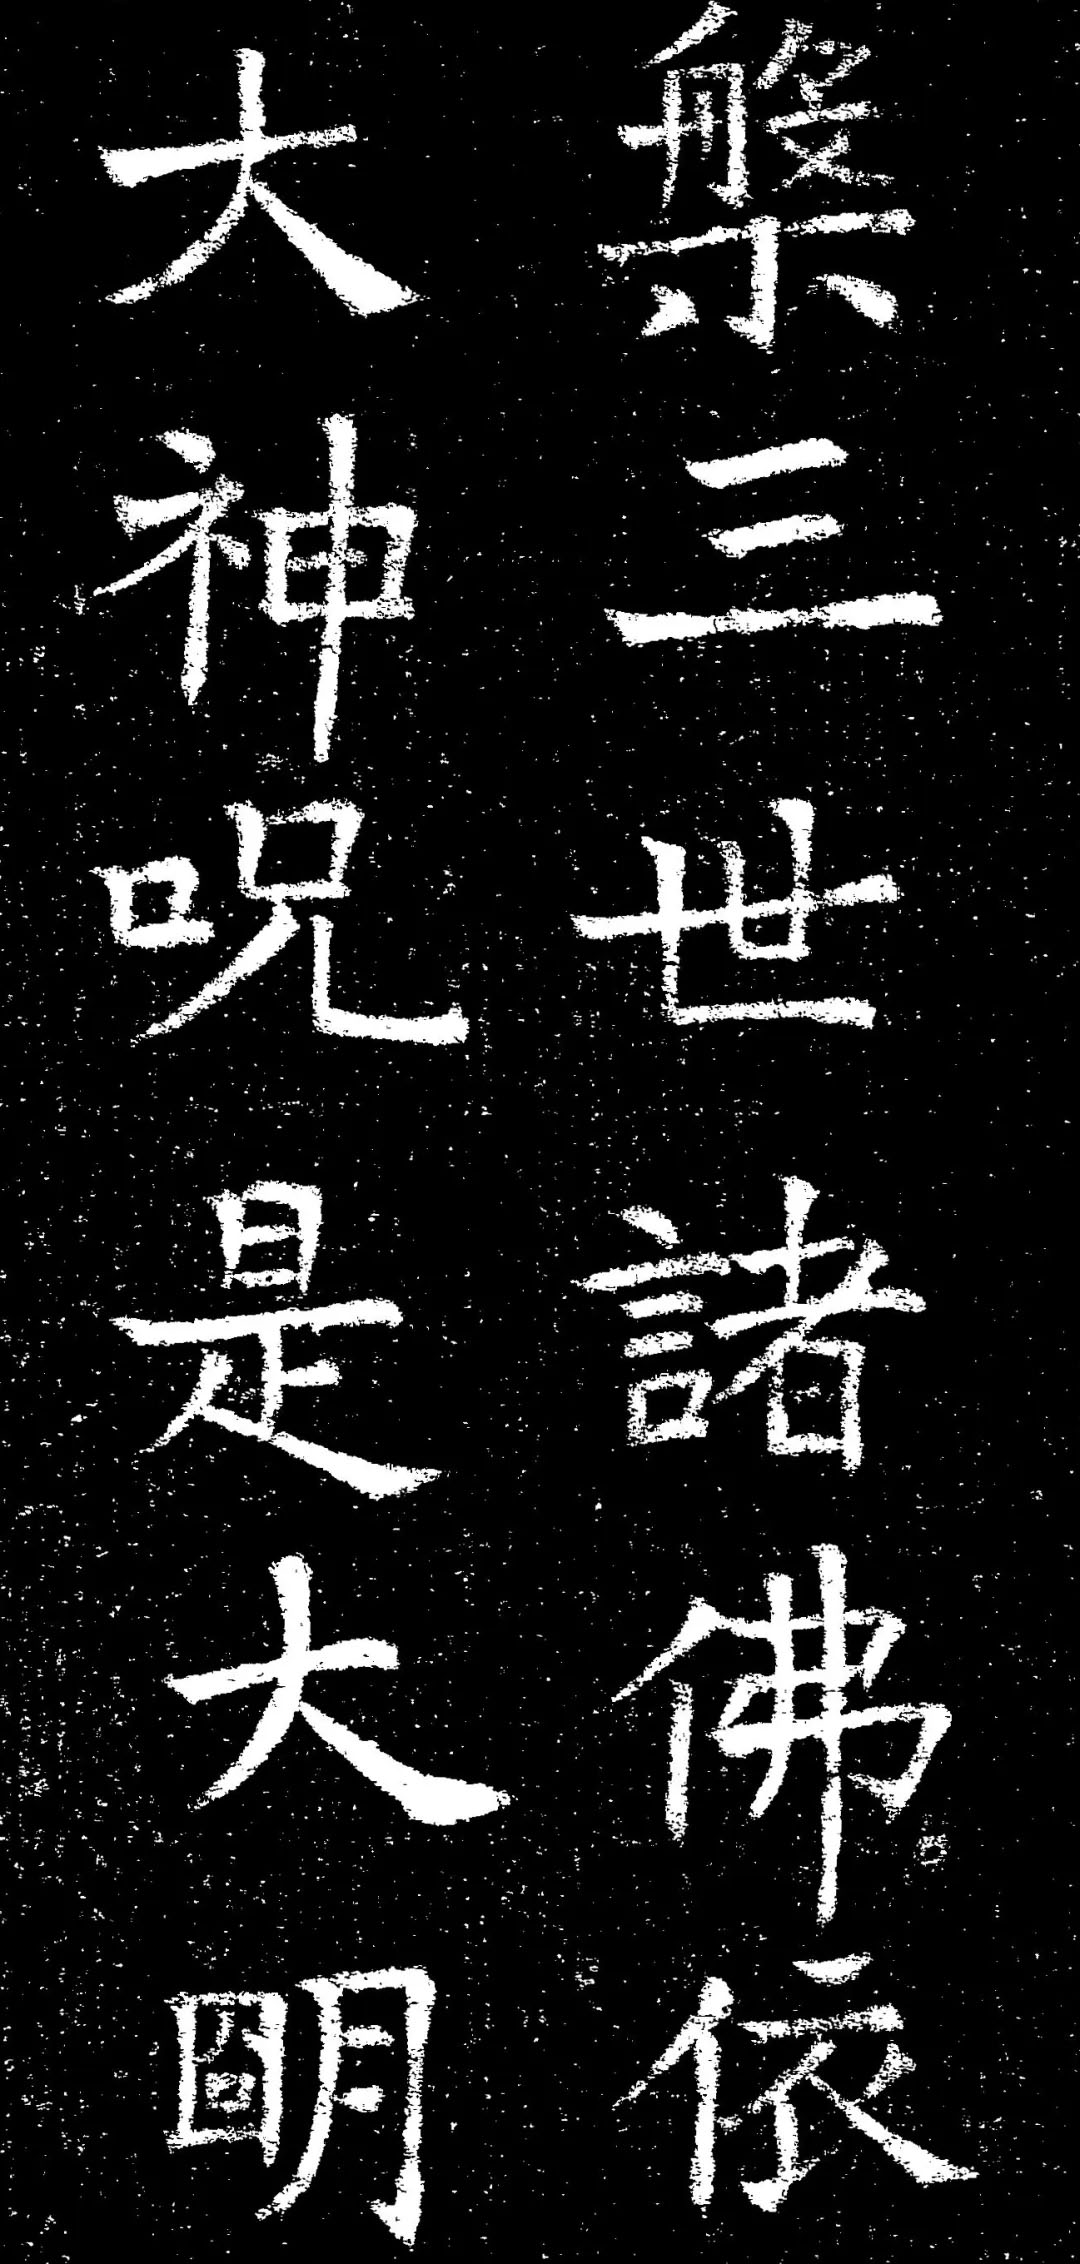 槃三世諸佛依
大神呪是大明